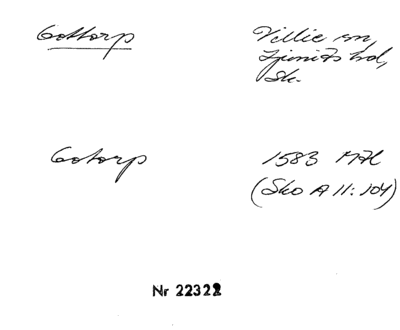 Gottorp
Villie sn,
Ljunits hd,
Sk.
Gotorp
1583 MH
(Sko A II: 104)
Nr 22322